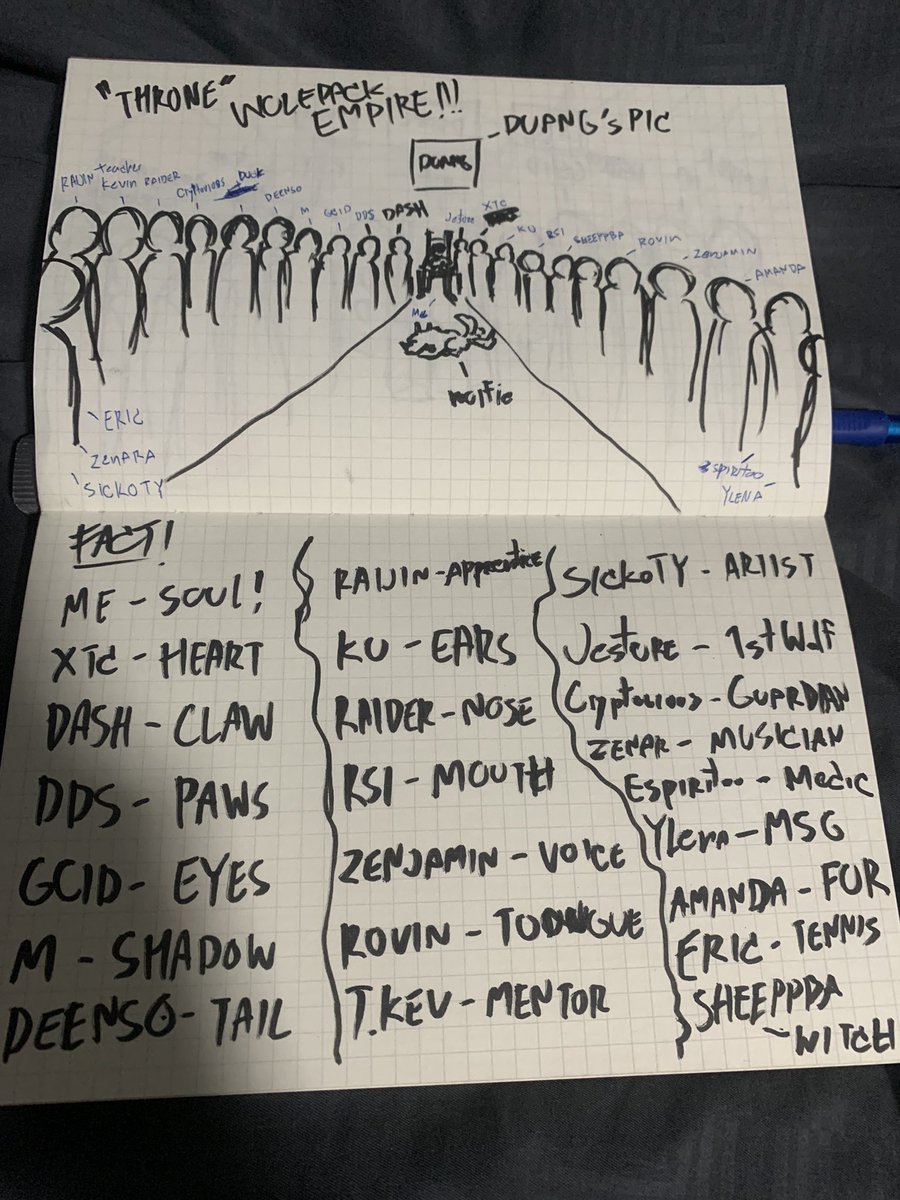 "THRONE" WOLFPACK
EMPIRE!!!
DUANG'S PIC
DUANG
RAIJIN
teacher
Kevin
RAIDER
Cryptovious
DEENSO
M
GCID
DDS
DASH
Jesture
XTC
KU
RSI
SHEEPPBA
ROVIN
ZENJAMIN
AMANDA
ME
wolfie
ERIC
ZENARA
SICKOTY
Espiritoo
YLENA
FACT!
ME - SOUL!
XTC - HEART
DASH - CLAW
DDS - PAWS
GCID - EYES
M - SHADOW
DEENSO - TAIL
RAIJIN - Apprentice
KU - EARS
RAIDER - NOSE
RSI - MOUTH
ZENJAMIN - VOICE
ROVIN - TOUNGUE
T.KEV - MENTOR
SICKOTY - ARTIST
Jesture - 1st Wolf
Cryptovious - GUARDIAN
ZENAR - MUSICIAN
Espiritoo - Medic
Ylena - MSG
AMANDA - FUR
ERIC - TENNIS
SHEEPPBA
- WITCH